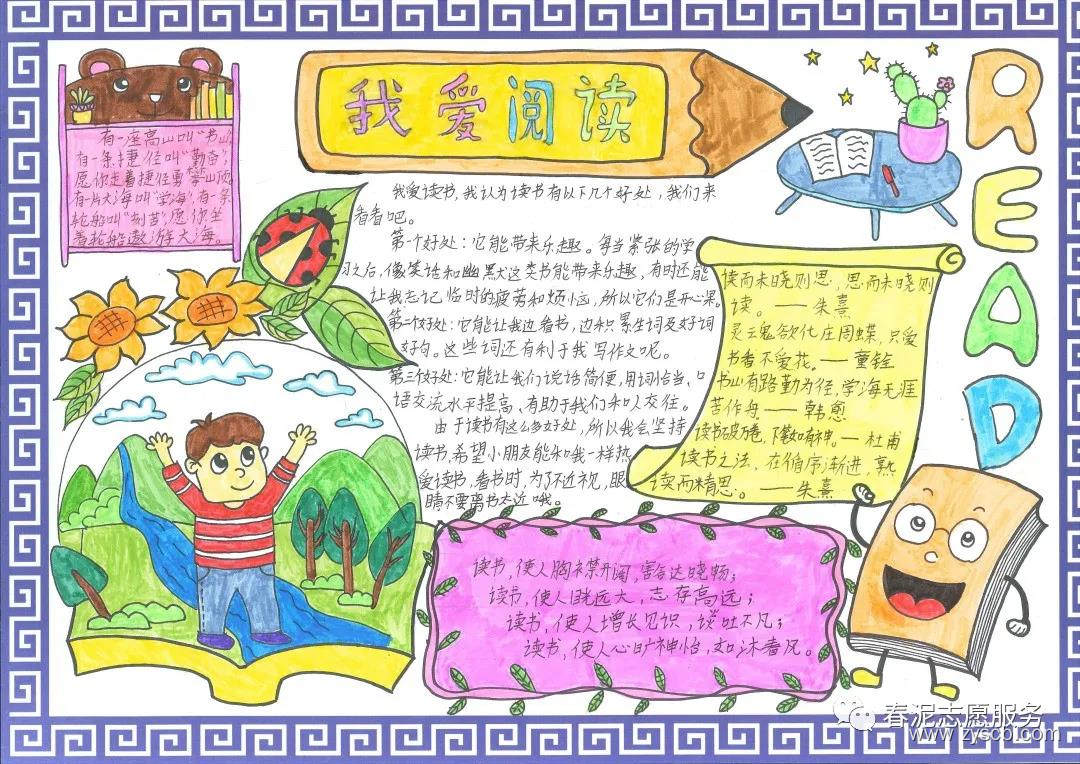 我爱阅读
READ
有一座高山叫“书山”,
有一条捷径叫“勤奋”,
愿你走着捷径勇攀山顶,
有一片大海叫“学海”,有一条
轮船叫“刻苦”愿你坐
着轮船遨游大海。
我爱读书,我认为读书有以下几个好处,我们来
看看吧。
第一个好处:它能带来乐趣。每当紧张的学
习之后,像笑话和幽默这类书能带来乐趣,有时还能
让我忘记临时的疲劳和烦恼,所以它们是开心果。
第二个好处:它能让我边看书,边积累生词及好词
好句。这些词还有利于我写作文呢。
第三个好处:它能让我们说话简便,用词恰当、口
语交流水平提高、有助于我们和人交往。
由于读书有这么多好处,所以我会坚持
读书,希望小朋友能和我一样热
爱读书,看书时,为了不近视,眼
睛不要离书太近哦。
读而未晓则思,思而未晓则
读。——朱熹
灵云鬼欲化庄周蝶,只爱
书香不爱花。——董铨
书山有路勤为径,学海无涯
苦作舟——韩愈
读书破万卷,下笔如有神。—杜甫
读书之法,在循序渐进,熟
读而精思。——朱熹
读书,使人胸襟开阔,豁达晓畅;
读书,使人眺远大,志存高远;
读书,使人增长见识,谈吐不凡;
读书,使人心旷神怡,如沐春风。
春泥志愿服务
www.zyscbl.com